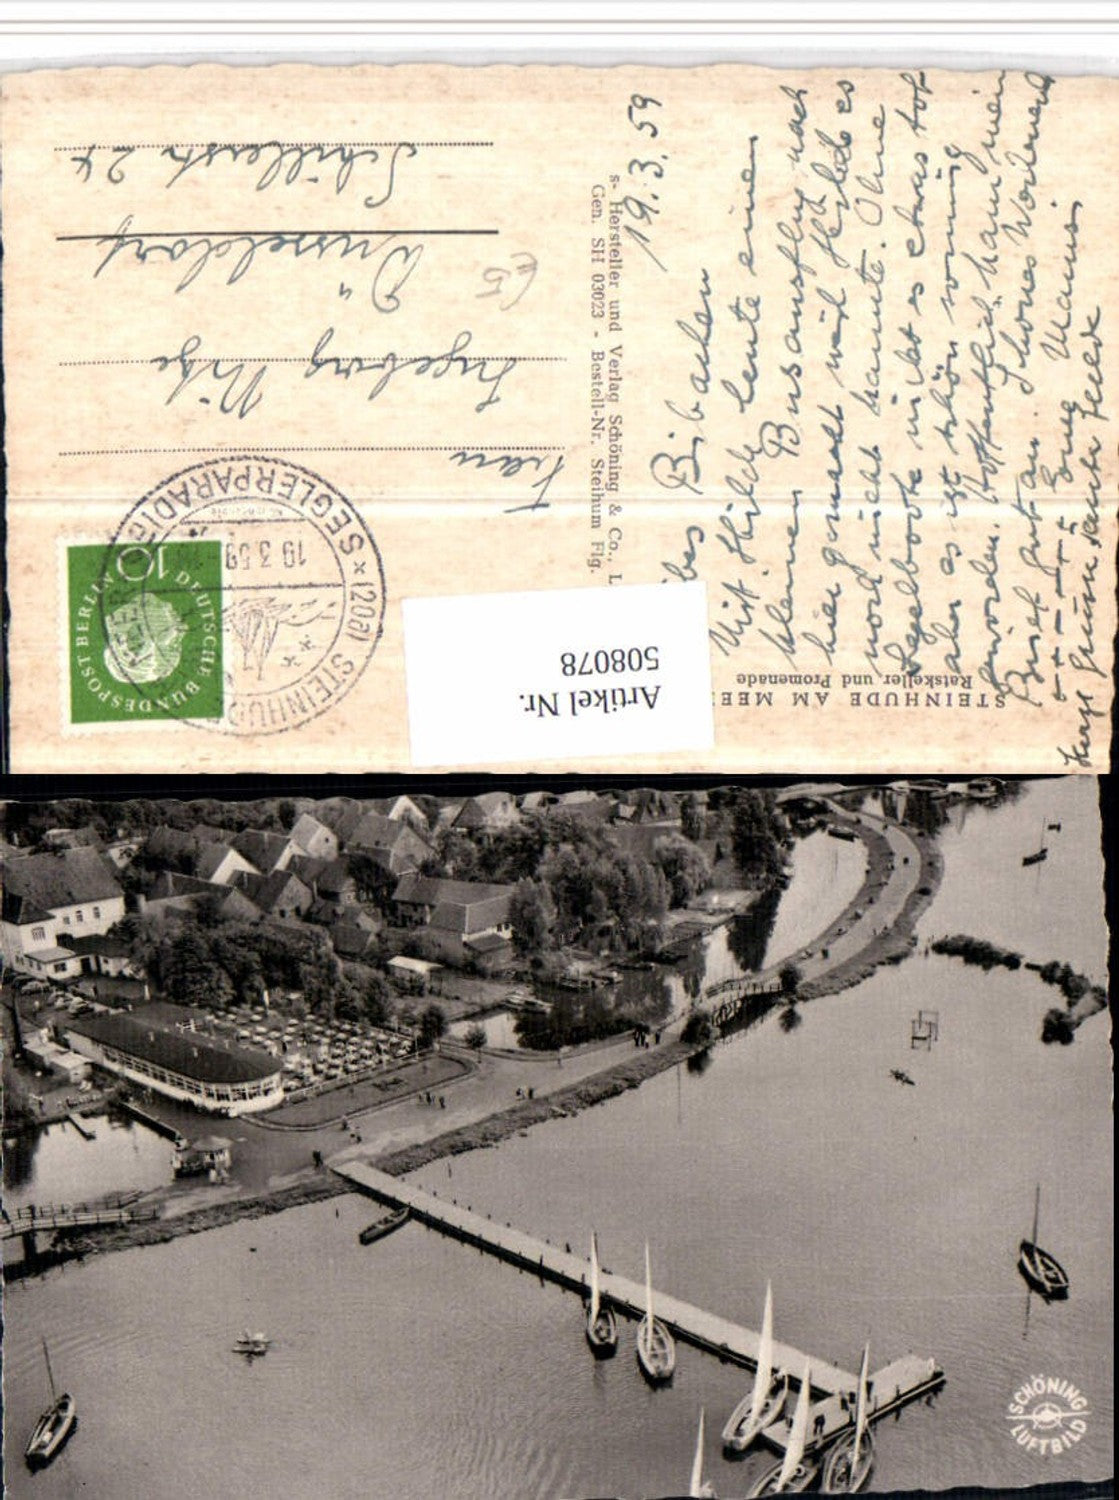 19.3.59
Bibachen
Mit Hilde heute einen
kleinen Busausflug nach
hier gemacht weil Hilde es
noch nicht kannte. Ohne
Segelboote wirkt es etwas tot
aber es ist schön sonnig
geworden. Hoffentlich kam mein
Brief gut an. Schönes Wochenende
Mausi
STEINHUDE AM MEER
Ratskeller und Promenade
Hersteller und Verlag Schöning & Co., L
Gen. SH 03023 - Bestell-Nr. Steihum Flg.
Frau
Ingeborg
Düsseldorf
Schillerstr 24
(20a) STEINHUDE
SEGLERPARADIES
19.3.59
10
DEUTSCHE BUNDESPOST BERLIN
Artikel Nr.
508078
SCHÖNING
LUFTBILD